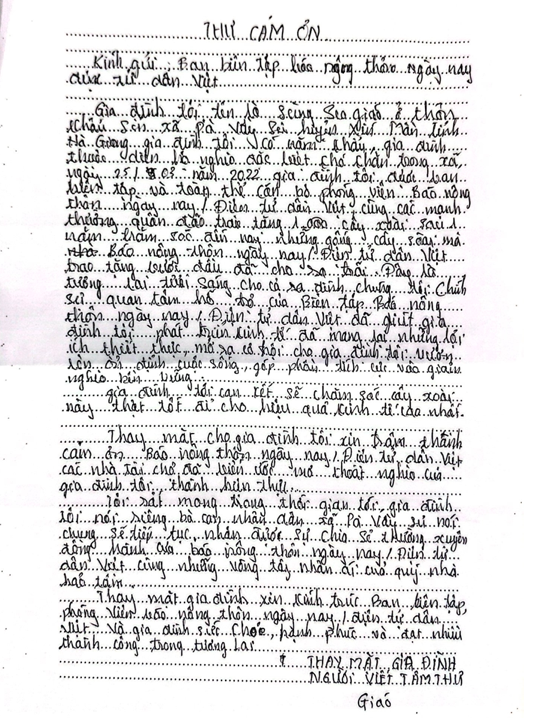 THƯ CẢM ƠN
Kính gửi: Ban biên tập báo nông thôn ngày nay
điện tử dân Việt
Gia đình tôi tên là Sùng Seo giáo ở thôn
Xã Pà Vầy Sủ huyện Xín Mần tỉnh
Hà Giang gia đình tôi có năm khẩu, gia đình
thuộc diện hộ nghèo đặc biệt khó khăn trong xã
ngày 25/03 năm 2022 gia đình tôi được ban
biên tập và toàn thể cán bộ phóng viên Báo nông
thôn ngày nay / Điện tử dân Việt cùng các mạnh
thường quân đã trao tặng 1.000 cây xoài sau 1
năm chăm sóc đến nay những cây xoài mà
Báo nông thôn ngày nay / Điện tử dân Việt
trao tặng bước đầu đã cho ra trái Đây là
tương lai tươi sáng cho cả gia đình chúng tôi Chính
sự quan tâm hỗ trợ của Biên tập Báo nông
thôn ngày nay / Điện tử dân Việt đã giúp gia
đình tôi phát triển kinh tế đã mang lại những lợi
ích thiết thực, mở ra cơ hội cho gia đình tôi vươn
lên ổn định cuộc sống, góp phần tích cực vào giảm
nghèo bền vững
gia đình tôi cam kết sẽ chăm sóc cây xoài
này thật tốt để cho hiệu quả kinh tế cao nhất.
Thay mặt cho gia đình tôi xin trân thành
cảm ơn Báo nông thôn ngày nay / Điện tử dân Việt
các nhà tài trợ đã biến ước mơ thoát nghèo của
gia đình tôi thành hiện thực
Tôi rất mong trong thời gian tới, gia đình
tôi nói riêng bà con nhân dân xã Pà Vầy Sủ nói
chung sẽ tiếp tục nhận được sự chia sẻ thường xuyên
đồng hành của báo nông thôn ngày nay / Điện tử
dân Việt cùng những vòng tay nhân ái của quý nhà
hảo tâm
Thay mặt gia đình xin kính chúc Ban biên tập,
phóng viên báo nông thôn ngày nay / điện tử dân
Việt và gia đình sức khỏe, hạnh phúc và đạt nhiều
thành công trong tương lai
THAY MẶT GIA ĐÌNH
NGƯỜI VIẾT TÂM THƯ
Giáo